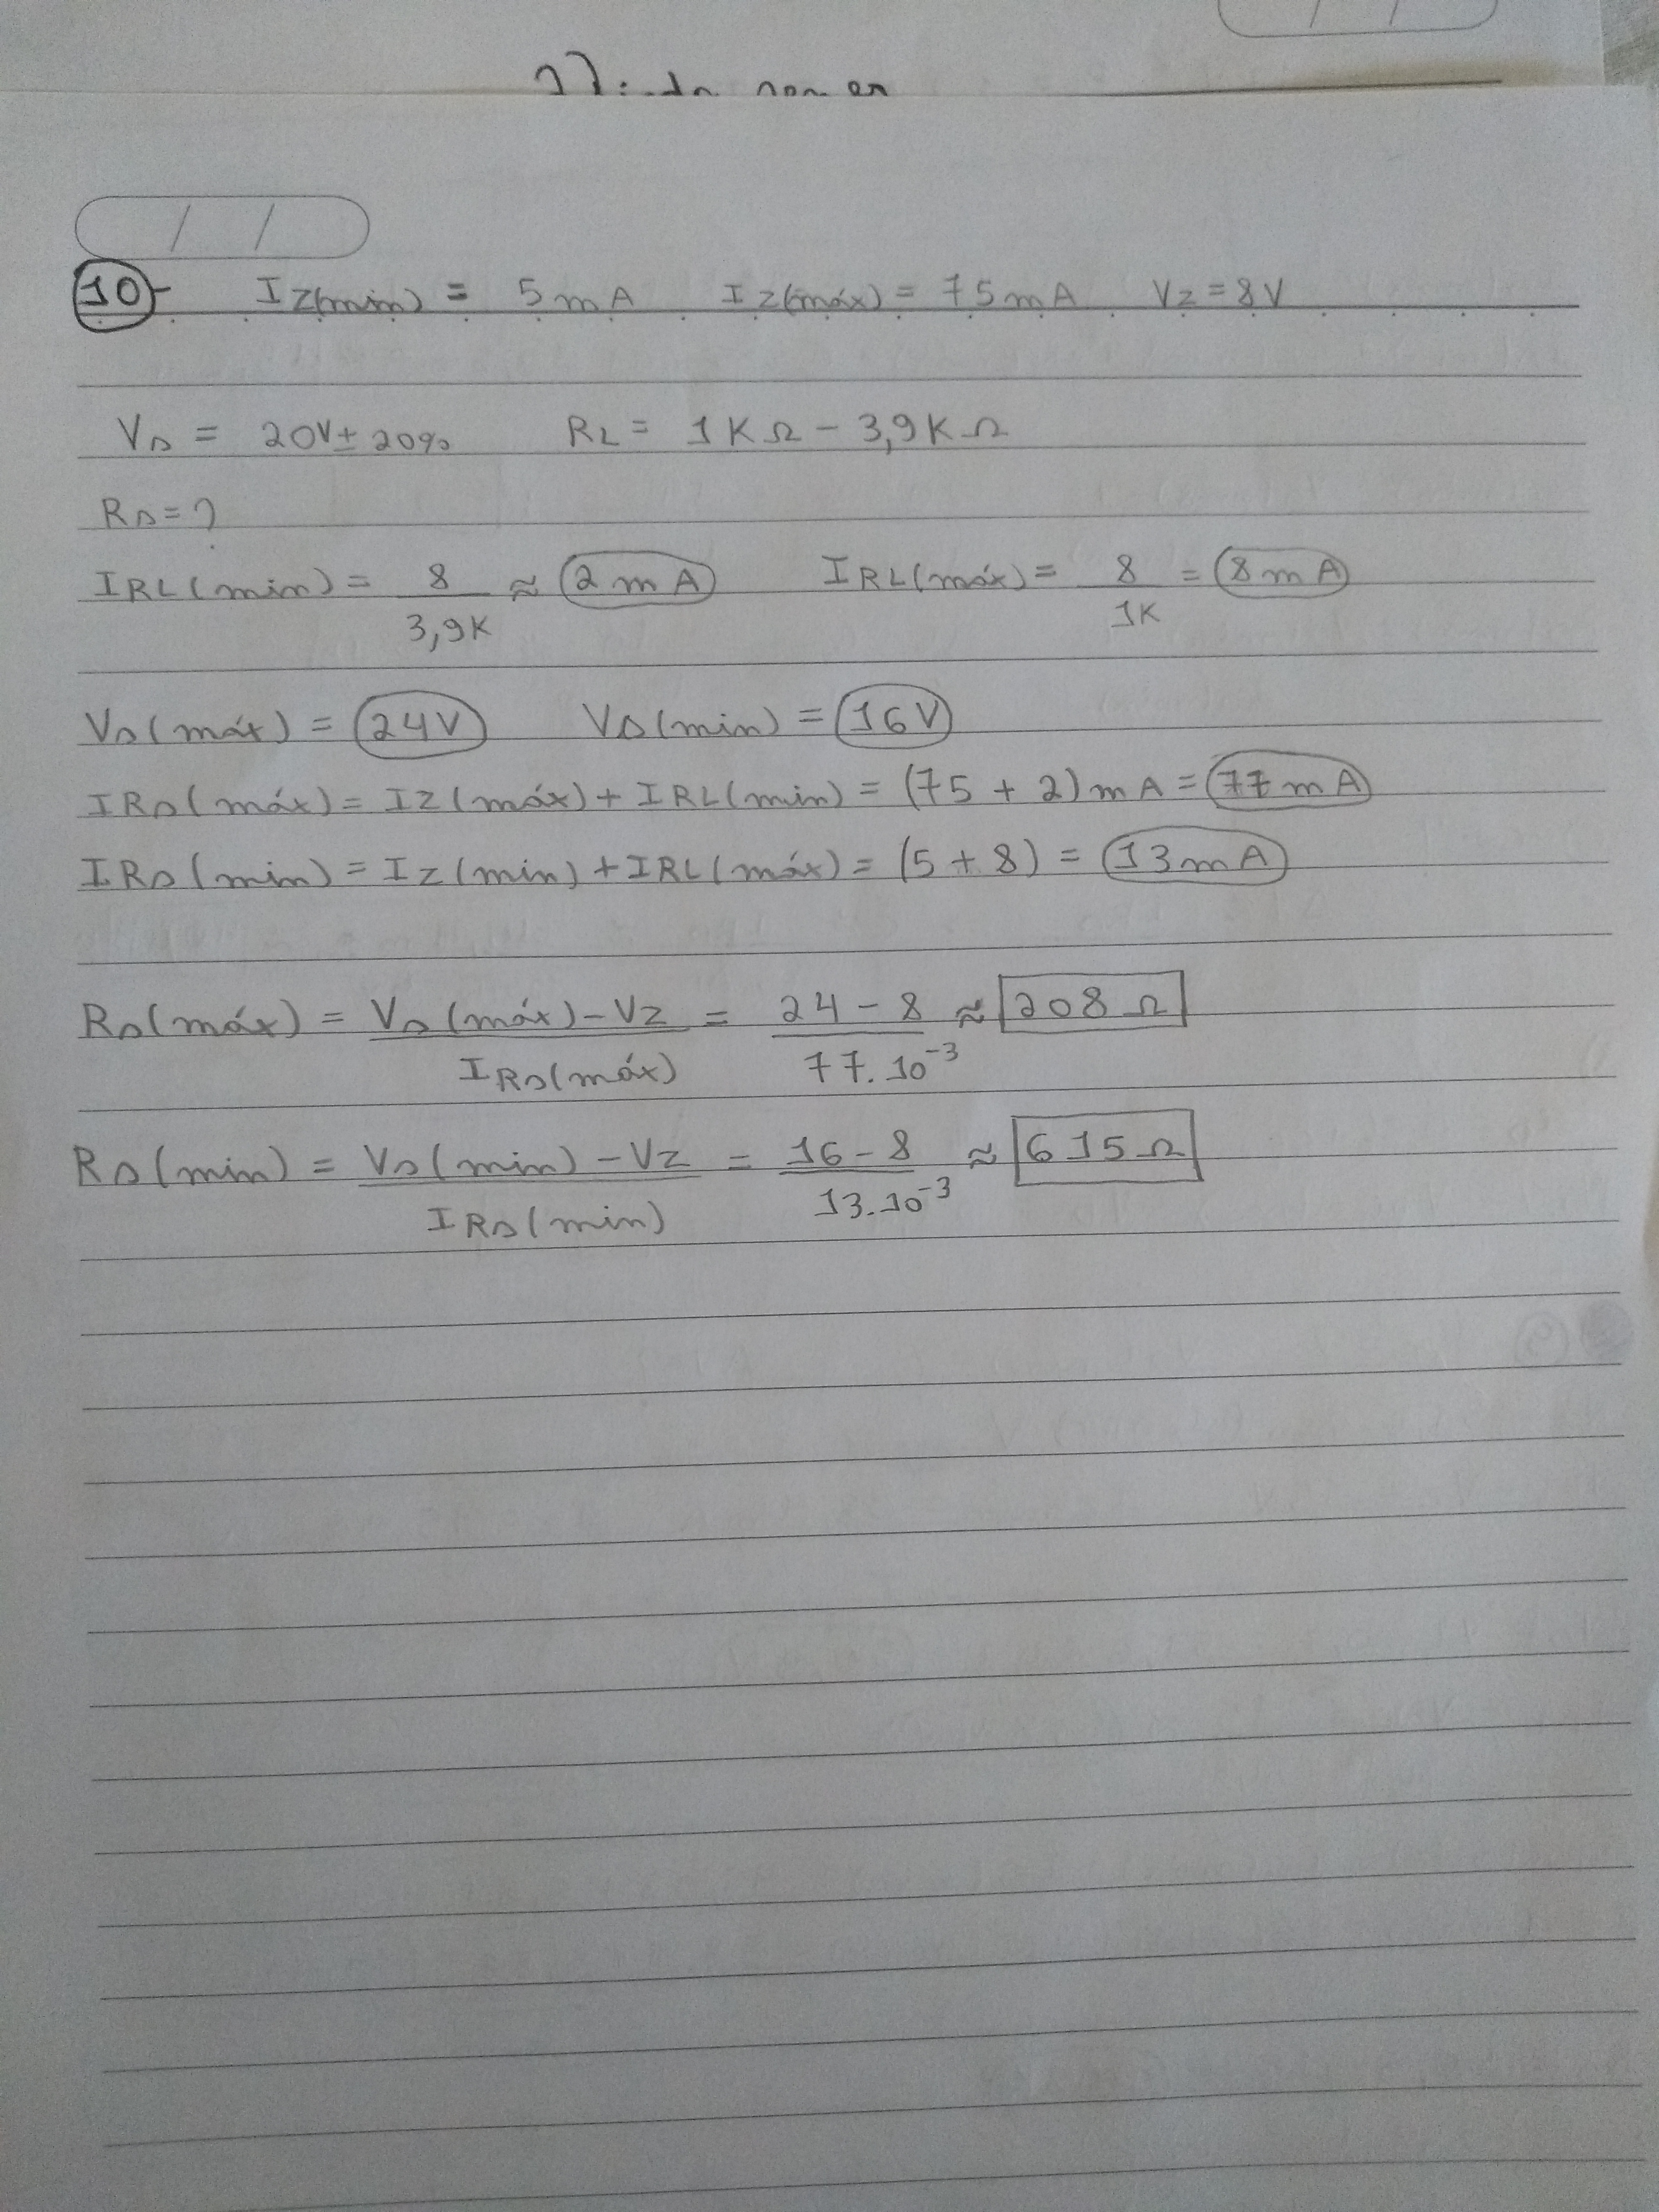 / /
/ /
10- Iz(min) = 5mA Iz(máx) = 75mA Vz = 8V
Vs = 20V ± 20% RL = 1KΩ - 3,9KΩ
Rs = ?
IRL(min) = 8/3,9K ≈ 2mA IRL(máx) = 8/1K = 8mA
Vs(máx) = 24V Vs(min) = 16V
IRs(máx) = Iz(máx) + IRL(min) = (75 + 2)mA = 77mA
IRs(min) = Iz(min) + IRL(máx) = (5 + 8) = 13mA
Rs(máx) = Vs(máx) - Vz / IRs(máx) = 24 - 8 / 77.10⁻³ ≈ 208Ω
Rs(min) = Vs(min) - Vz / IRs(min) = 16 - 8 / 13.10⁻³ ≈ 615Ω